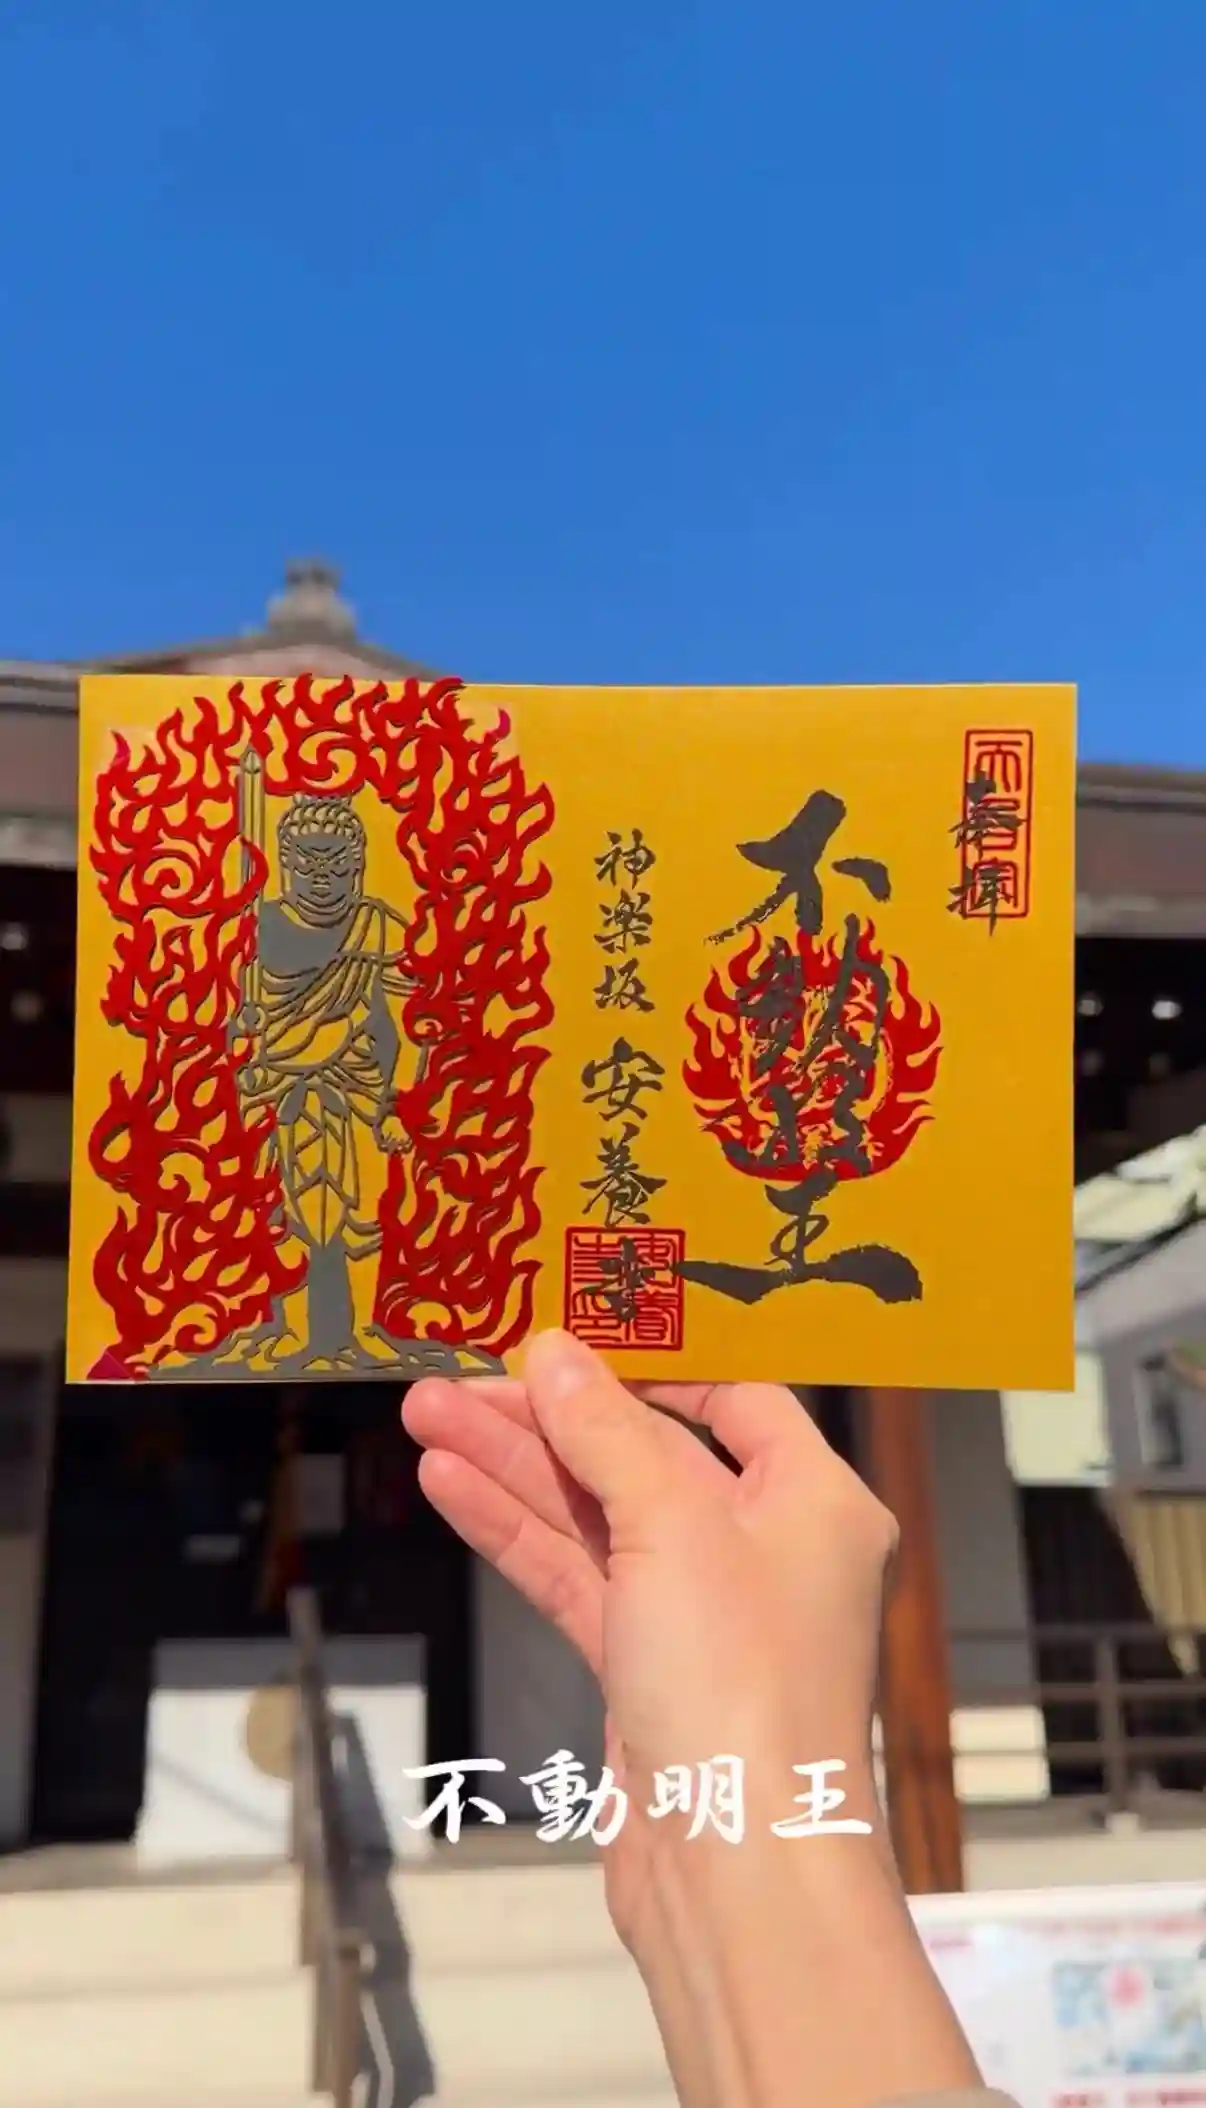 奉拝
不動明王
神楽坂 安養寺
不動明王